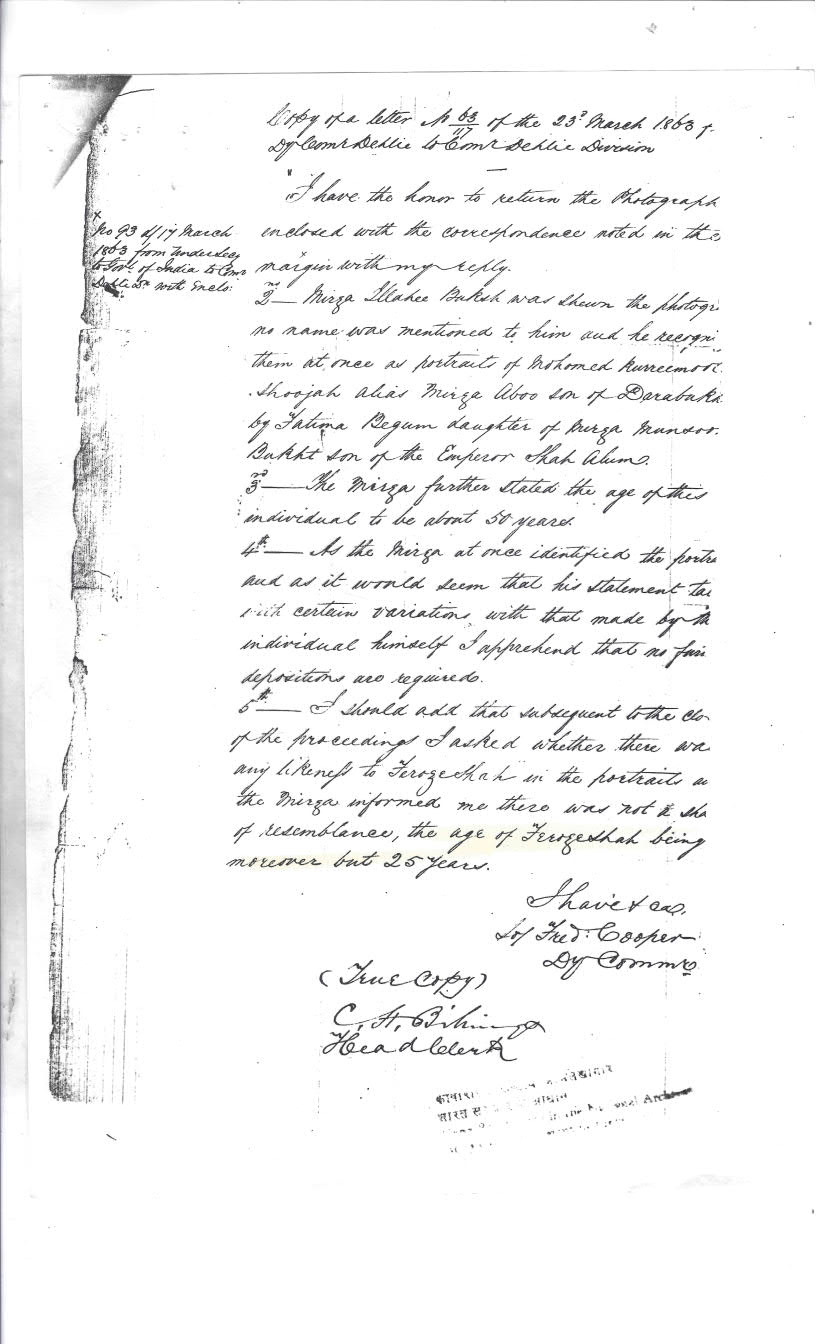 Copy of a letter No 63/117 of the 23d March 1863 f.
Dy Comr Dehlie to Comr Dehlie Division
"I have the honor to return the Photograph
x
No 93 d/ 17 March
1863 from Under Secy
to Govt of India to Comr
Dehlie Dn with Enclo:
enclosed with the correspondence noted in the
margin with my reply.
2nd — Mirza Illahee Buksh was shewn the photogr
no name was mentioned to him and he recogni
them at once as portraits of Mohomed Kurreemood
Shoojah alias Mirza Aboo son of Darabuk
by Fatima Begum daughter of Mirza Munsoo
Bukht son of the Emperor Shah Alum.
3rd — The Mirza further stated the age of this
individual to be about 50 years.
4th — As the Mirza at once identified the portra
and as it would seem that his statement ta
with certain variations, with that made by th
individual himself I apprehend that no fur
depositions are required.
5th — I should add that subsequent to the clo
of the proceedings I asked whether there wa
any likeness to Feroze Shah in the portraits a
the Mirza informed me there was not a sha
of resemblance, the age of Feroze Shah being
moreover but 25 Years.
I have &ca.
So/ Fred: Cooper
Dy Commr
(True Copy)
C. H.
Head Clerk
भारत